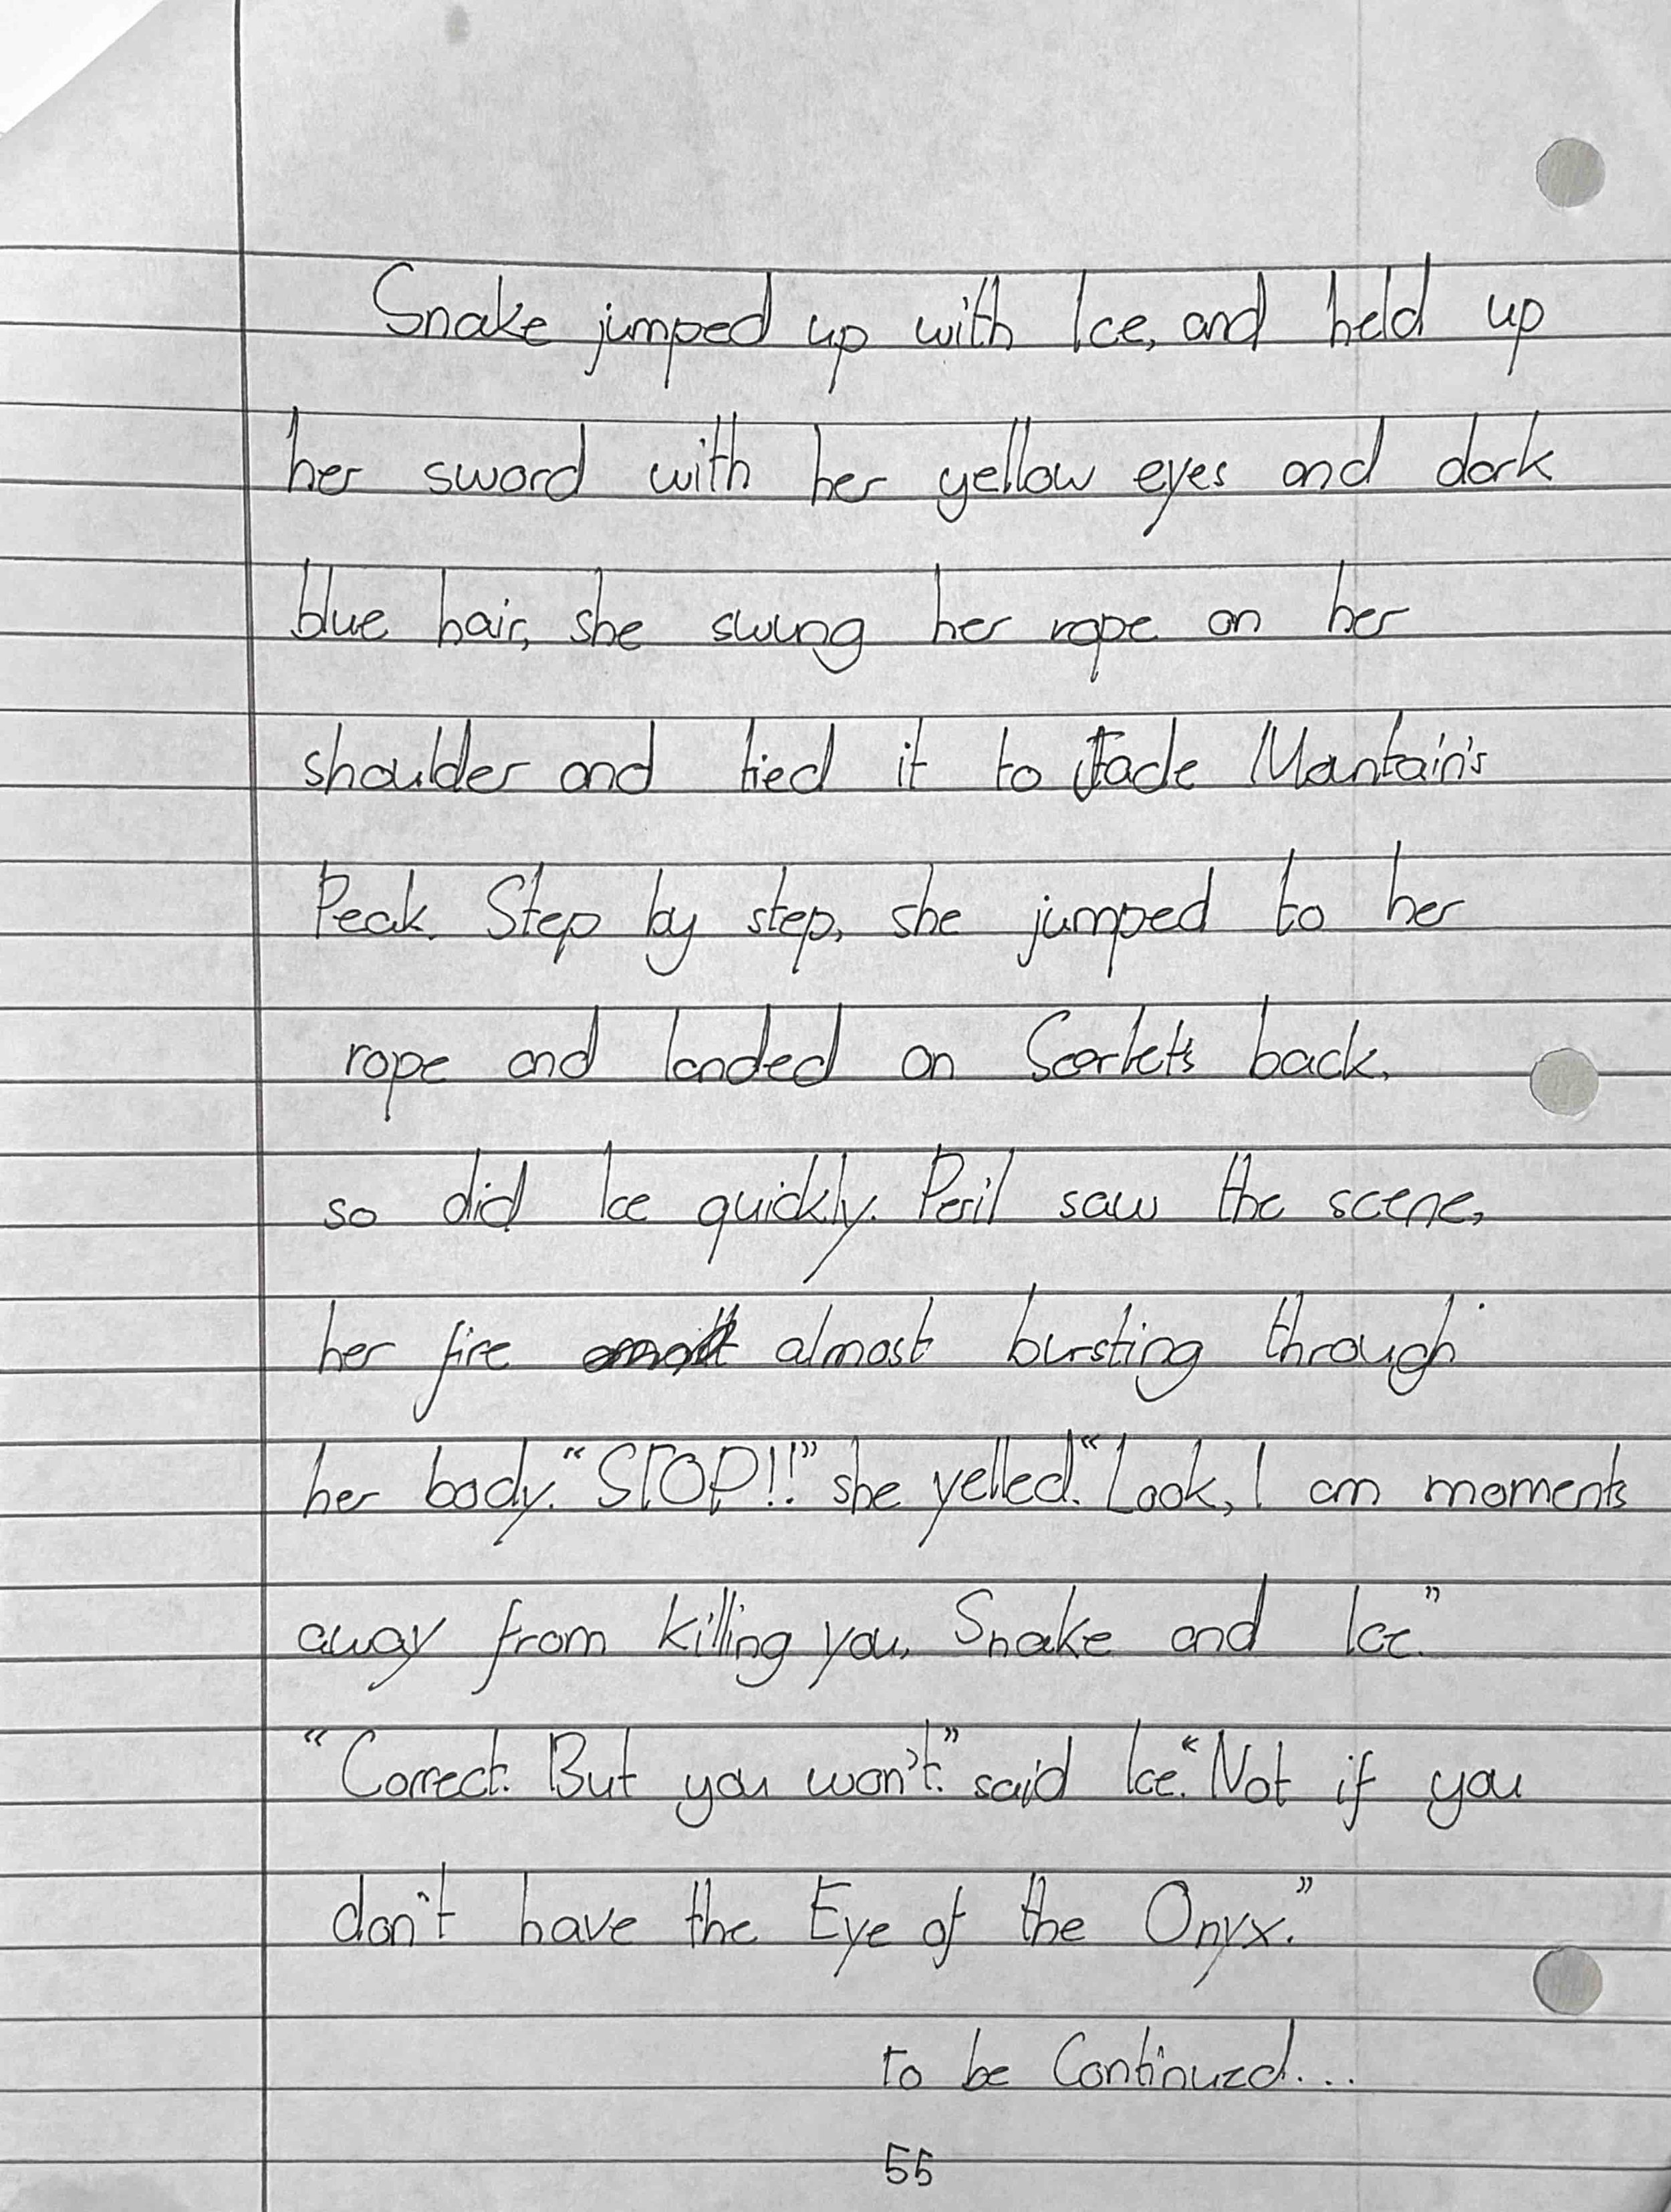 Snake jumped up with Ice, and held up
her sword with her yellow eyes and dark
blue hair, she swung her rope on her
shoulder and tied it to Jade Mantain's
Peak. Step by step, she jumped to her
rope and landed on Scarlet's back,
so did Ice quickly. Peril saw the scene,
her fire almost bursting through
her body. “STOP!!” she yelled. “Look, I am moments
away from killing you, Snake and Ice.”
“Correct. But you won't.” said Ice. “Not if you
don't have the Eye of the Onyx.”
to be Continued...
55